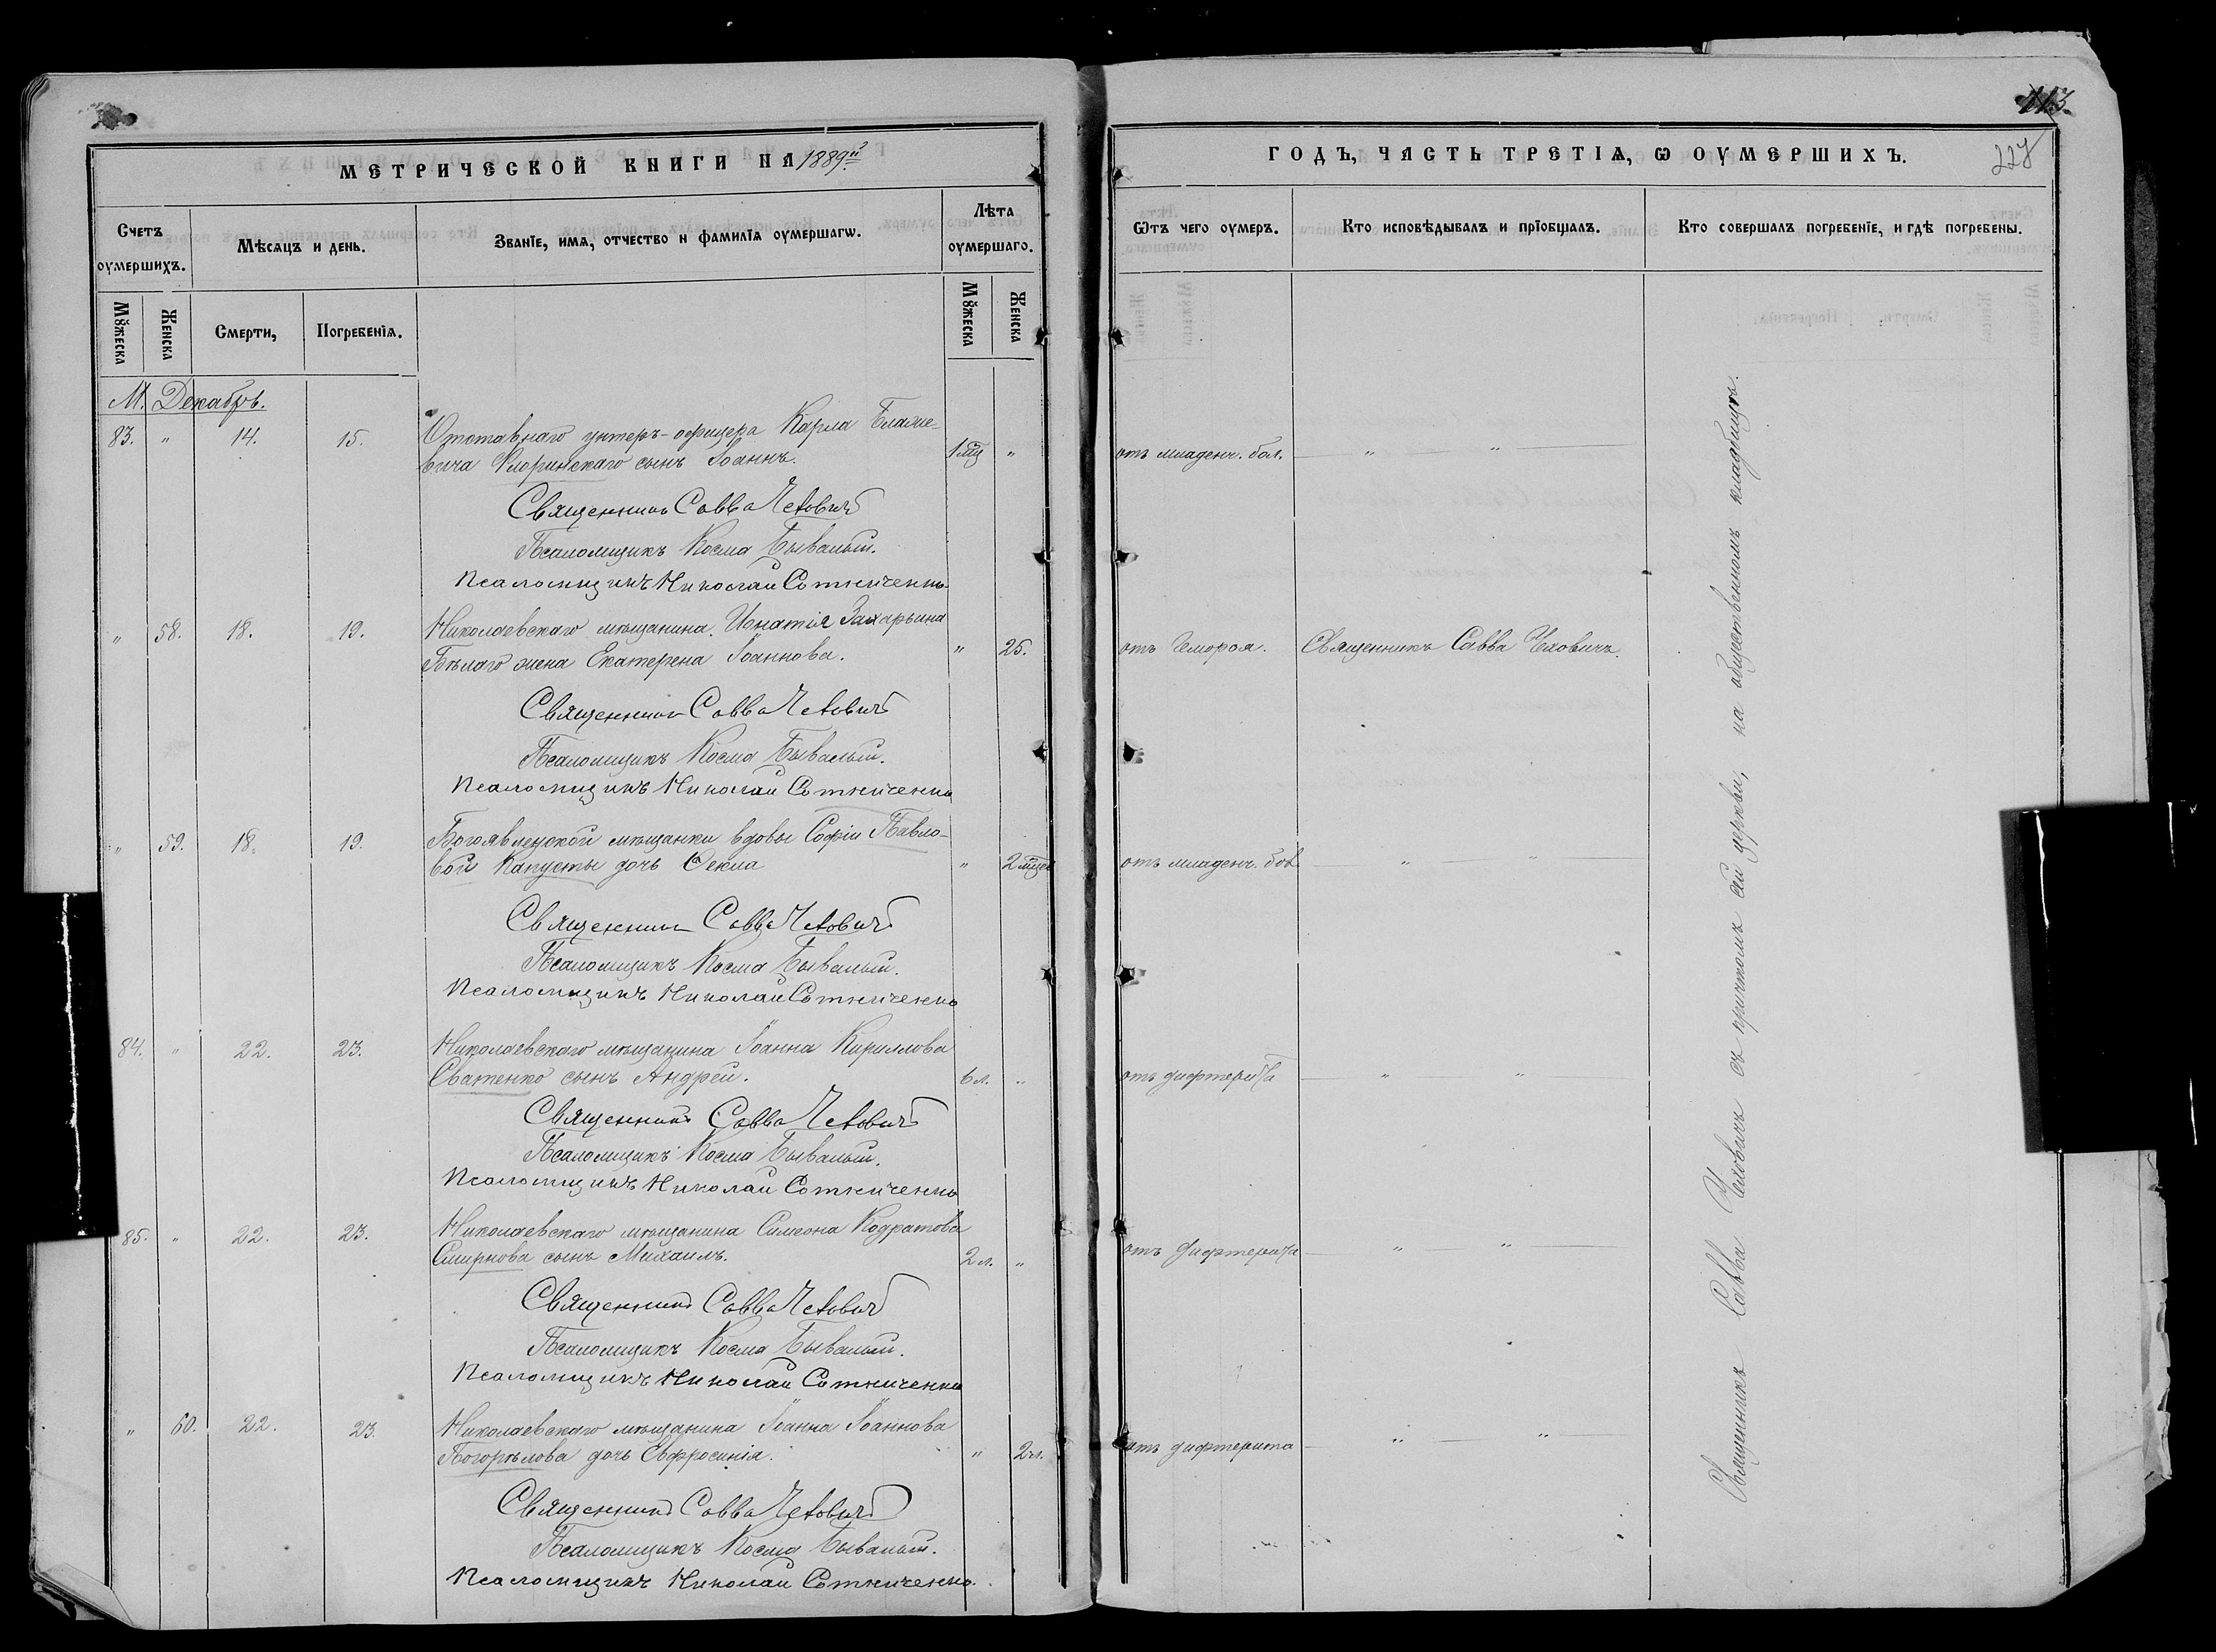 МЕТРИЧЕСКОЙ КНИГИ НА 1889й
Счетъ оумершихъ.
Мѣсяцъ и день.
Званїе, имѧ, отчество и фамилїѧ оумершагѡ.
Лѣта оумершаго.
Мꙋжеска
Женска
Смерти,
Погребенїѧ.
Мꙋжеска
Женска
М. Декабрь.
83. " 14. 15. Отставнаго унтеръ-офицера Карла Блаже-
вича Клоринскаго сынъ Іоаннъ. 1 мц "
Священникъ Савва Чеховичъ
Псаломщикъ Косма Бывалый.
Псаломщикъ Николай Сотниченко
" 58. 18. 19. Николаевскаго мѣщанина Игнатія Захарьина
Бѣлаго жена Екатерена Іоаннова. " 25.
Священникъ Савва Чеховичъ
Псаломщикъ Косма Бывалый.
Псаломщикъ Николай Сотниченко
" 59. 18. 19. Богоявленской мѣщанки вдовы Софіи Павло-
вой Капусты дочь Ѳекла " 2 мцев
Священникъ Савва Чеховичъ
Псаломщикъ Косма Бывалый.
Псаломщикъ Николай Сотниченко
84. " 22. 23. Николаевскаго мѣщанина Іоанна Кириллова
Сватенко сынъ Андрей. 6 л. "
Священникъ Савва Чеховичъ
Псаломщикъ Косма Бывалый.
Псаломщикъ Николай Сотниченко
85. " 22. 23. Николаевскаго мѣщанина Симеона Кодратова
Смирнова сынъ Михаилъ. 2 л. "
Священникъ Савва Чеховичъ
Псаломщикъ Косма Бывалый.
Псаломщикъ Николай Сотниченко
" 60. 22. 23. Николаевскаго мѣщанина Іоанна Іоаннова
Погорѣлова дочь Евфросинія. " 2 л.
Священникъ Савва Чеховичъ
Псаломщикъ Косма Бывалый.
Псаломщикъ Николай Сотниченко.
113.
ГОДЪ, ЧАСТЬ ТРЕТІѦ, Ѡ ОУМЕРШИХЪ.
Ѿтъ чего оумеръ.
Кто исповѣдывалъ и прїобщалъ.
Кто совершалъ погребенїе, и гдѣ погребены.
отъ младенч. бол. " "
отъ Гемороя. Священникъ Савва Чеховичъ.
отъ младенч. бол " "
отъ дифтерита " "
отъ дифтерита " "
отъ дифтерита " "
Священникъ Савва Чеховичъ съ причтомъ сей церкви, на общественномъ кладбищѣ.